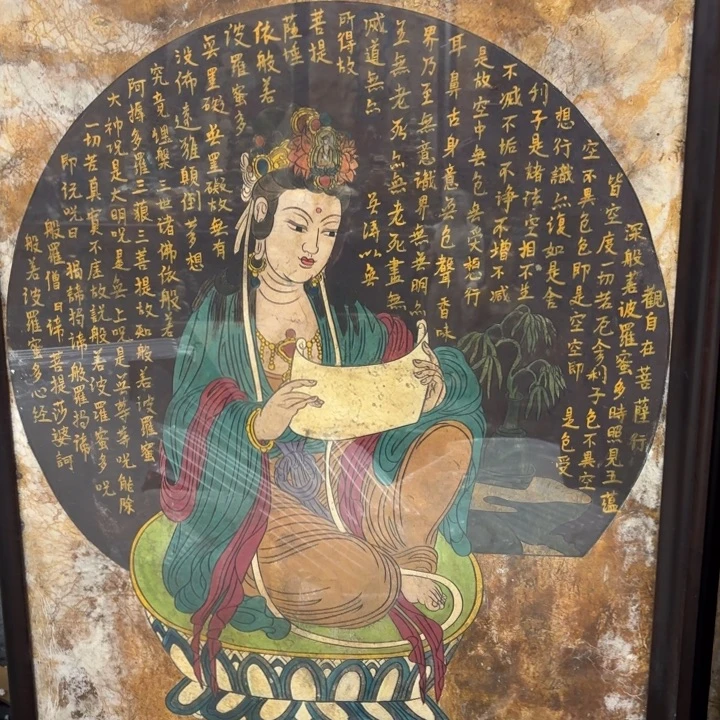 觀自在菩薩行
深般若波羅蜜多時照見五蘊
皆空度一切苦厄舍利子色不異空
空不異色色即是空空即是色受
想行識亦復如是舍
利子是諸法空相不生
不滅不垢不淨不增不減
是故空中無色無受想行
耳鼻舌身意無色聲香味
界乃至無意識界無無明亦
至無老死亦無老死盡無
滅道無以無
所得故
菩提
薩埵
依般若
波羅蜜多
無罣礙無罣礙故無有
遠離顛倒夢想
究竟涅槃三世諸佛依般若
阿耨多羅三藐三菩提故知般若波羅蜜
大神咒是大明咒是無上咒是無等等咒能除
一切苦真實不虛故說般若波羅蜜多咒
即說咒曰揭諦揭諦般羅揭諦
般羅僧揭諦菩提莎婆訶
般若波羅蜜多心經